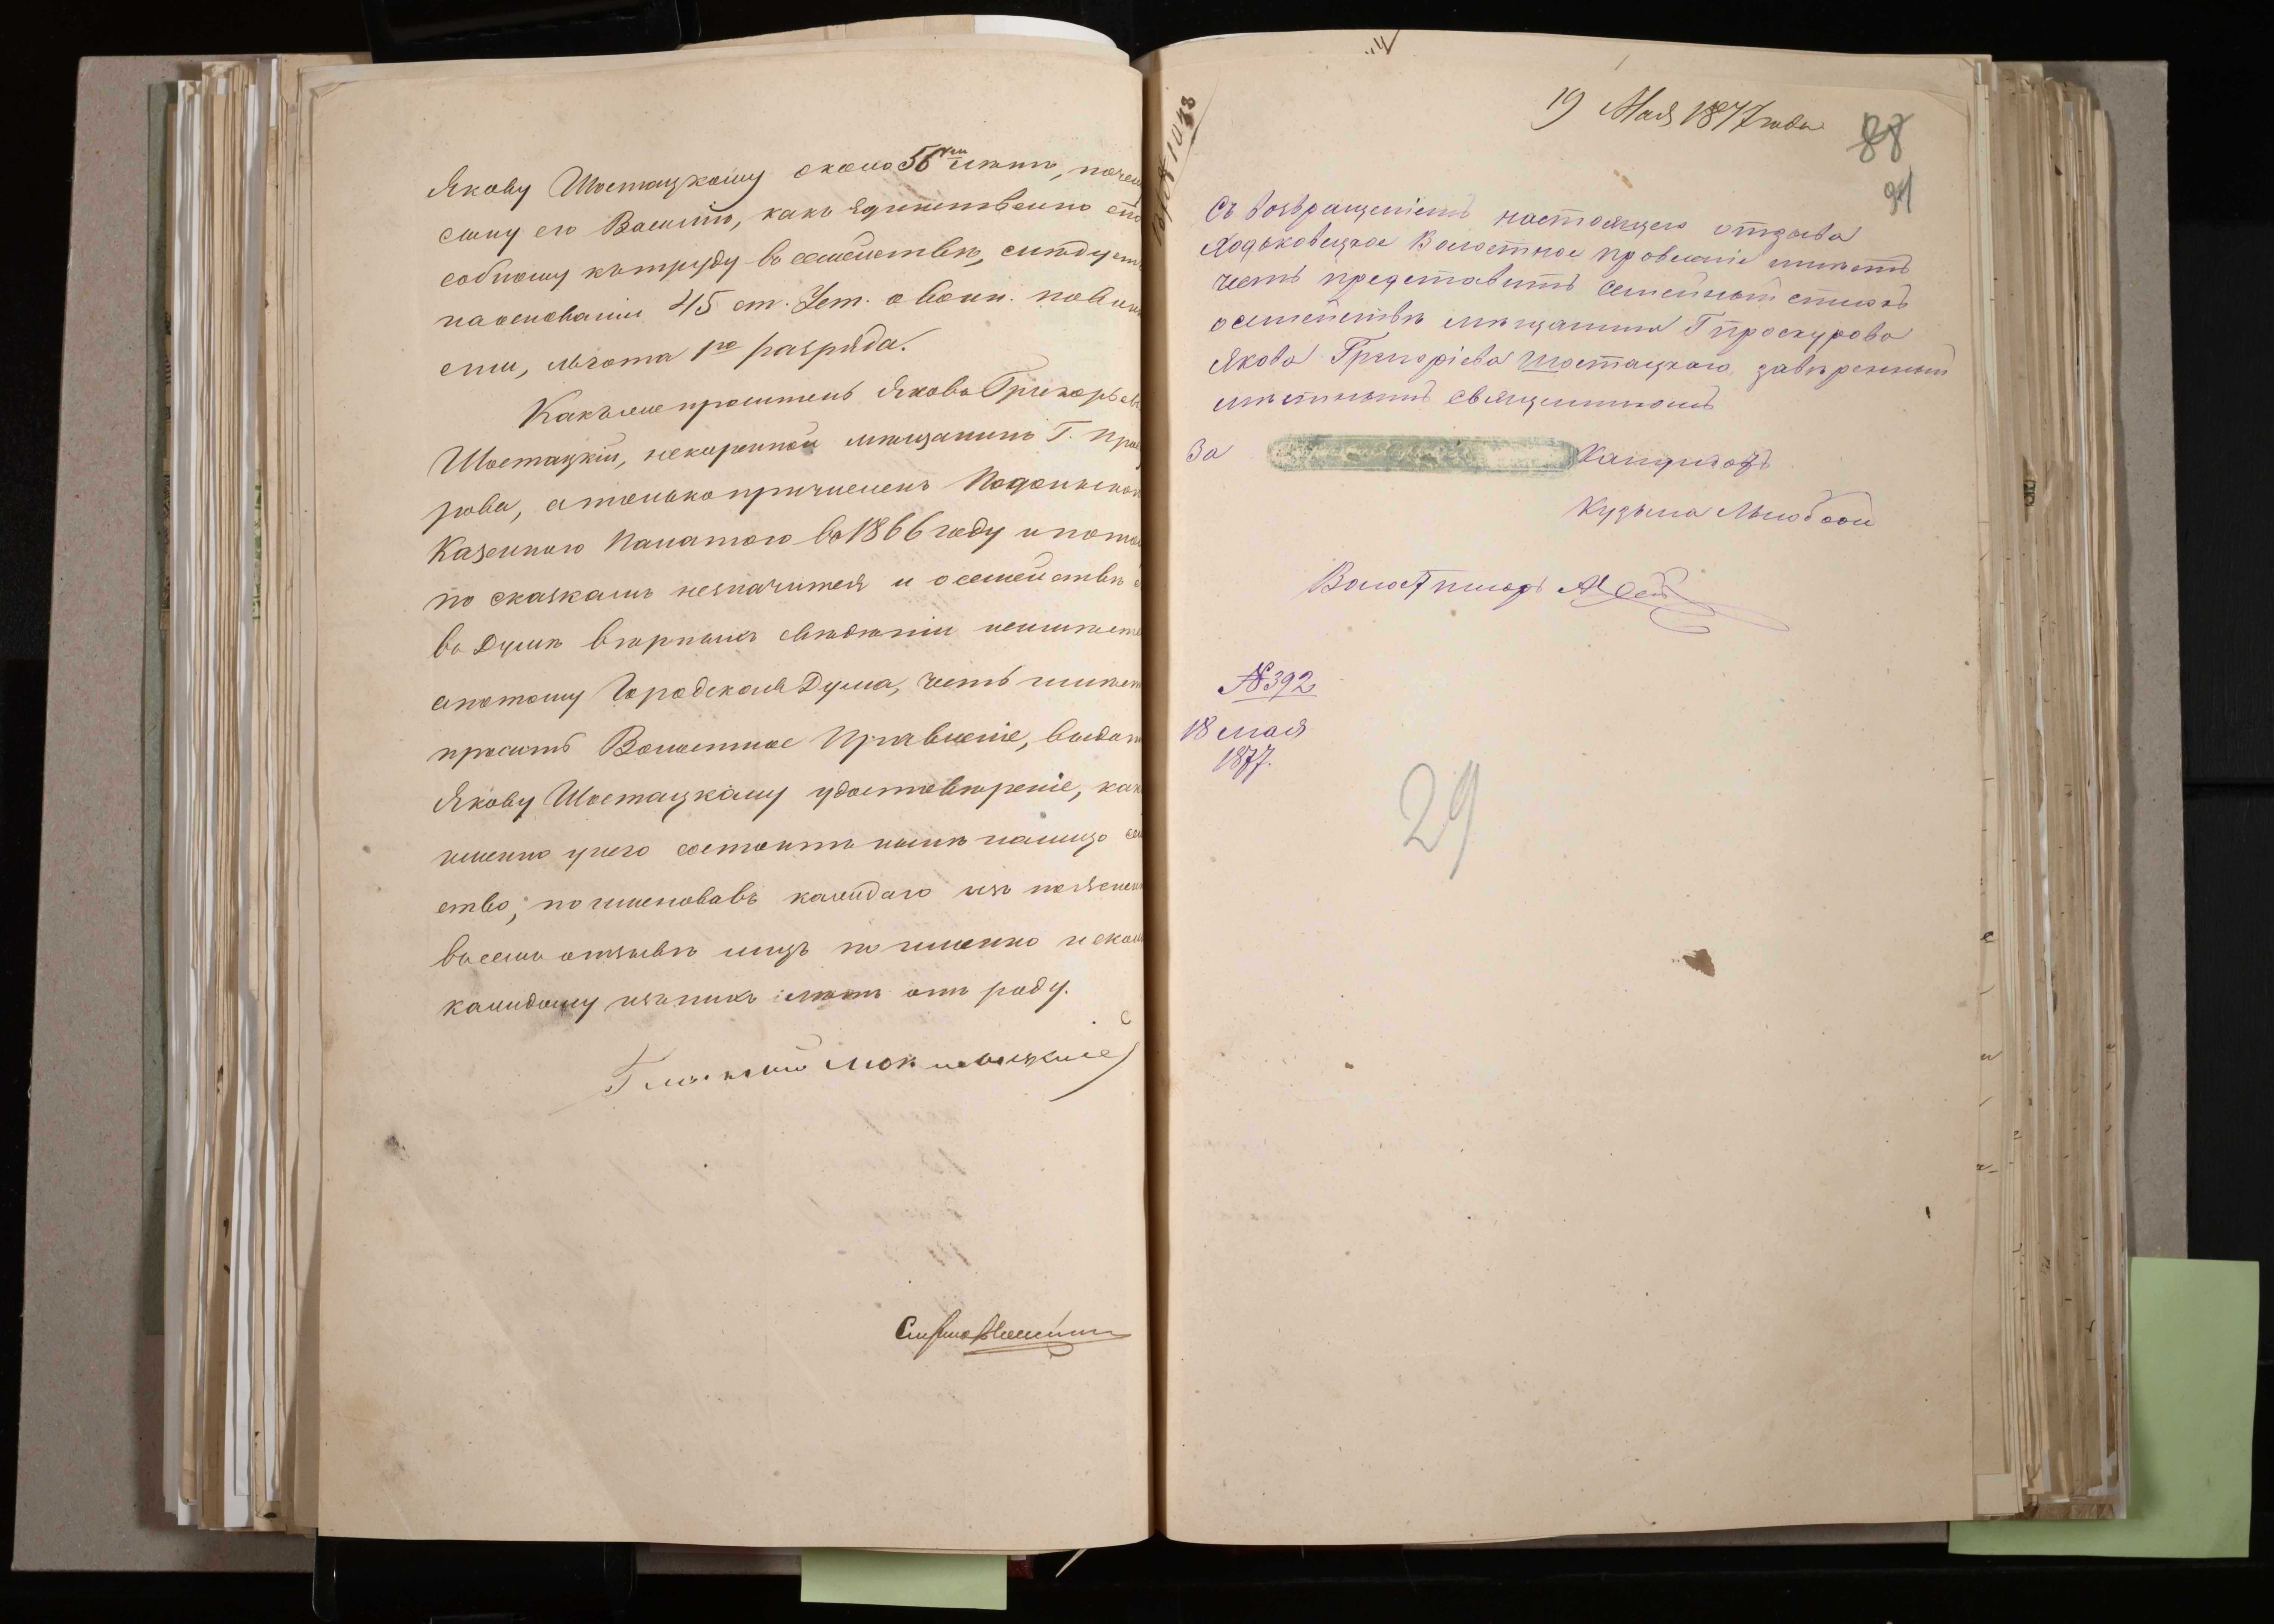 Якову Шостацкому около 56ти лѣтъ, почем
сыну его Василію, какъ единственно спо
собному къ труду въ семействѣ, слѣдуетъ
на основаніи 45 ст. Уст. о воин. повин
сти, льгота 1го разряда.
Какъ же проситель Яковъ Григорьев
Шостацкій, не коренной мѣщанинъ Г. Прос
рова, а только причисленъ Подольскою
Казенною Палатою въ 1866 году и пото
по сказкамъ не значится и о семействѣ е
въ Думѣ вѣрныхъ свѣдѣній не имѣет
а потому Городская Дума, честь имѣет
просить Волостное Правленіе, выдат
Якову Шостацкому удостовѣреніе, как
именно у него состоитъ нынѣ на лицо се
ство, поименовавъ каждаго изъ поясне
въ семъ отзывѣ лицъ поименно и скол
каждому изъ нихъ лѣтъ отъ роду.
19 Мая 1877 года
88
91
Съ возвращеніемъ настоящего отзыва
Ходьковецкое Волостное правленіе имѣетъ
честь представить семейный списокъ
о семействѣ мѣщанина Г Проскурова
Якова Григорієва Шостацкого, завѣренный
мѣстнымъ священникомъ
За
Кандидатъ
Кузьма
Волост писарь
№ 392
18 мая
1877.
29